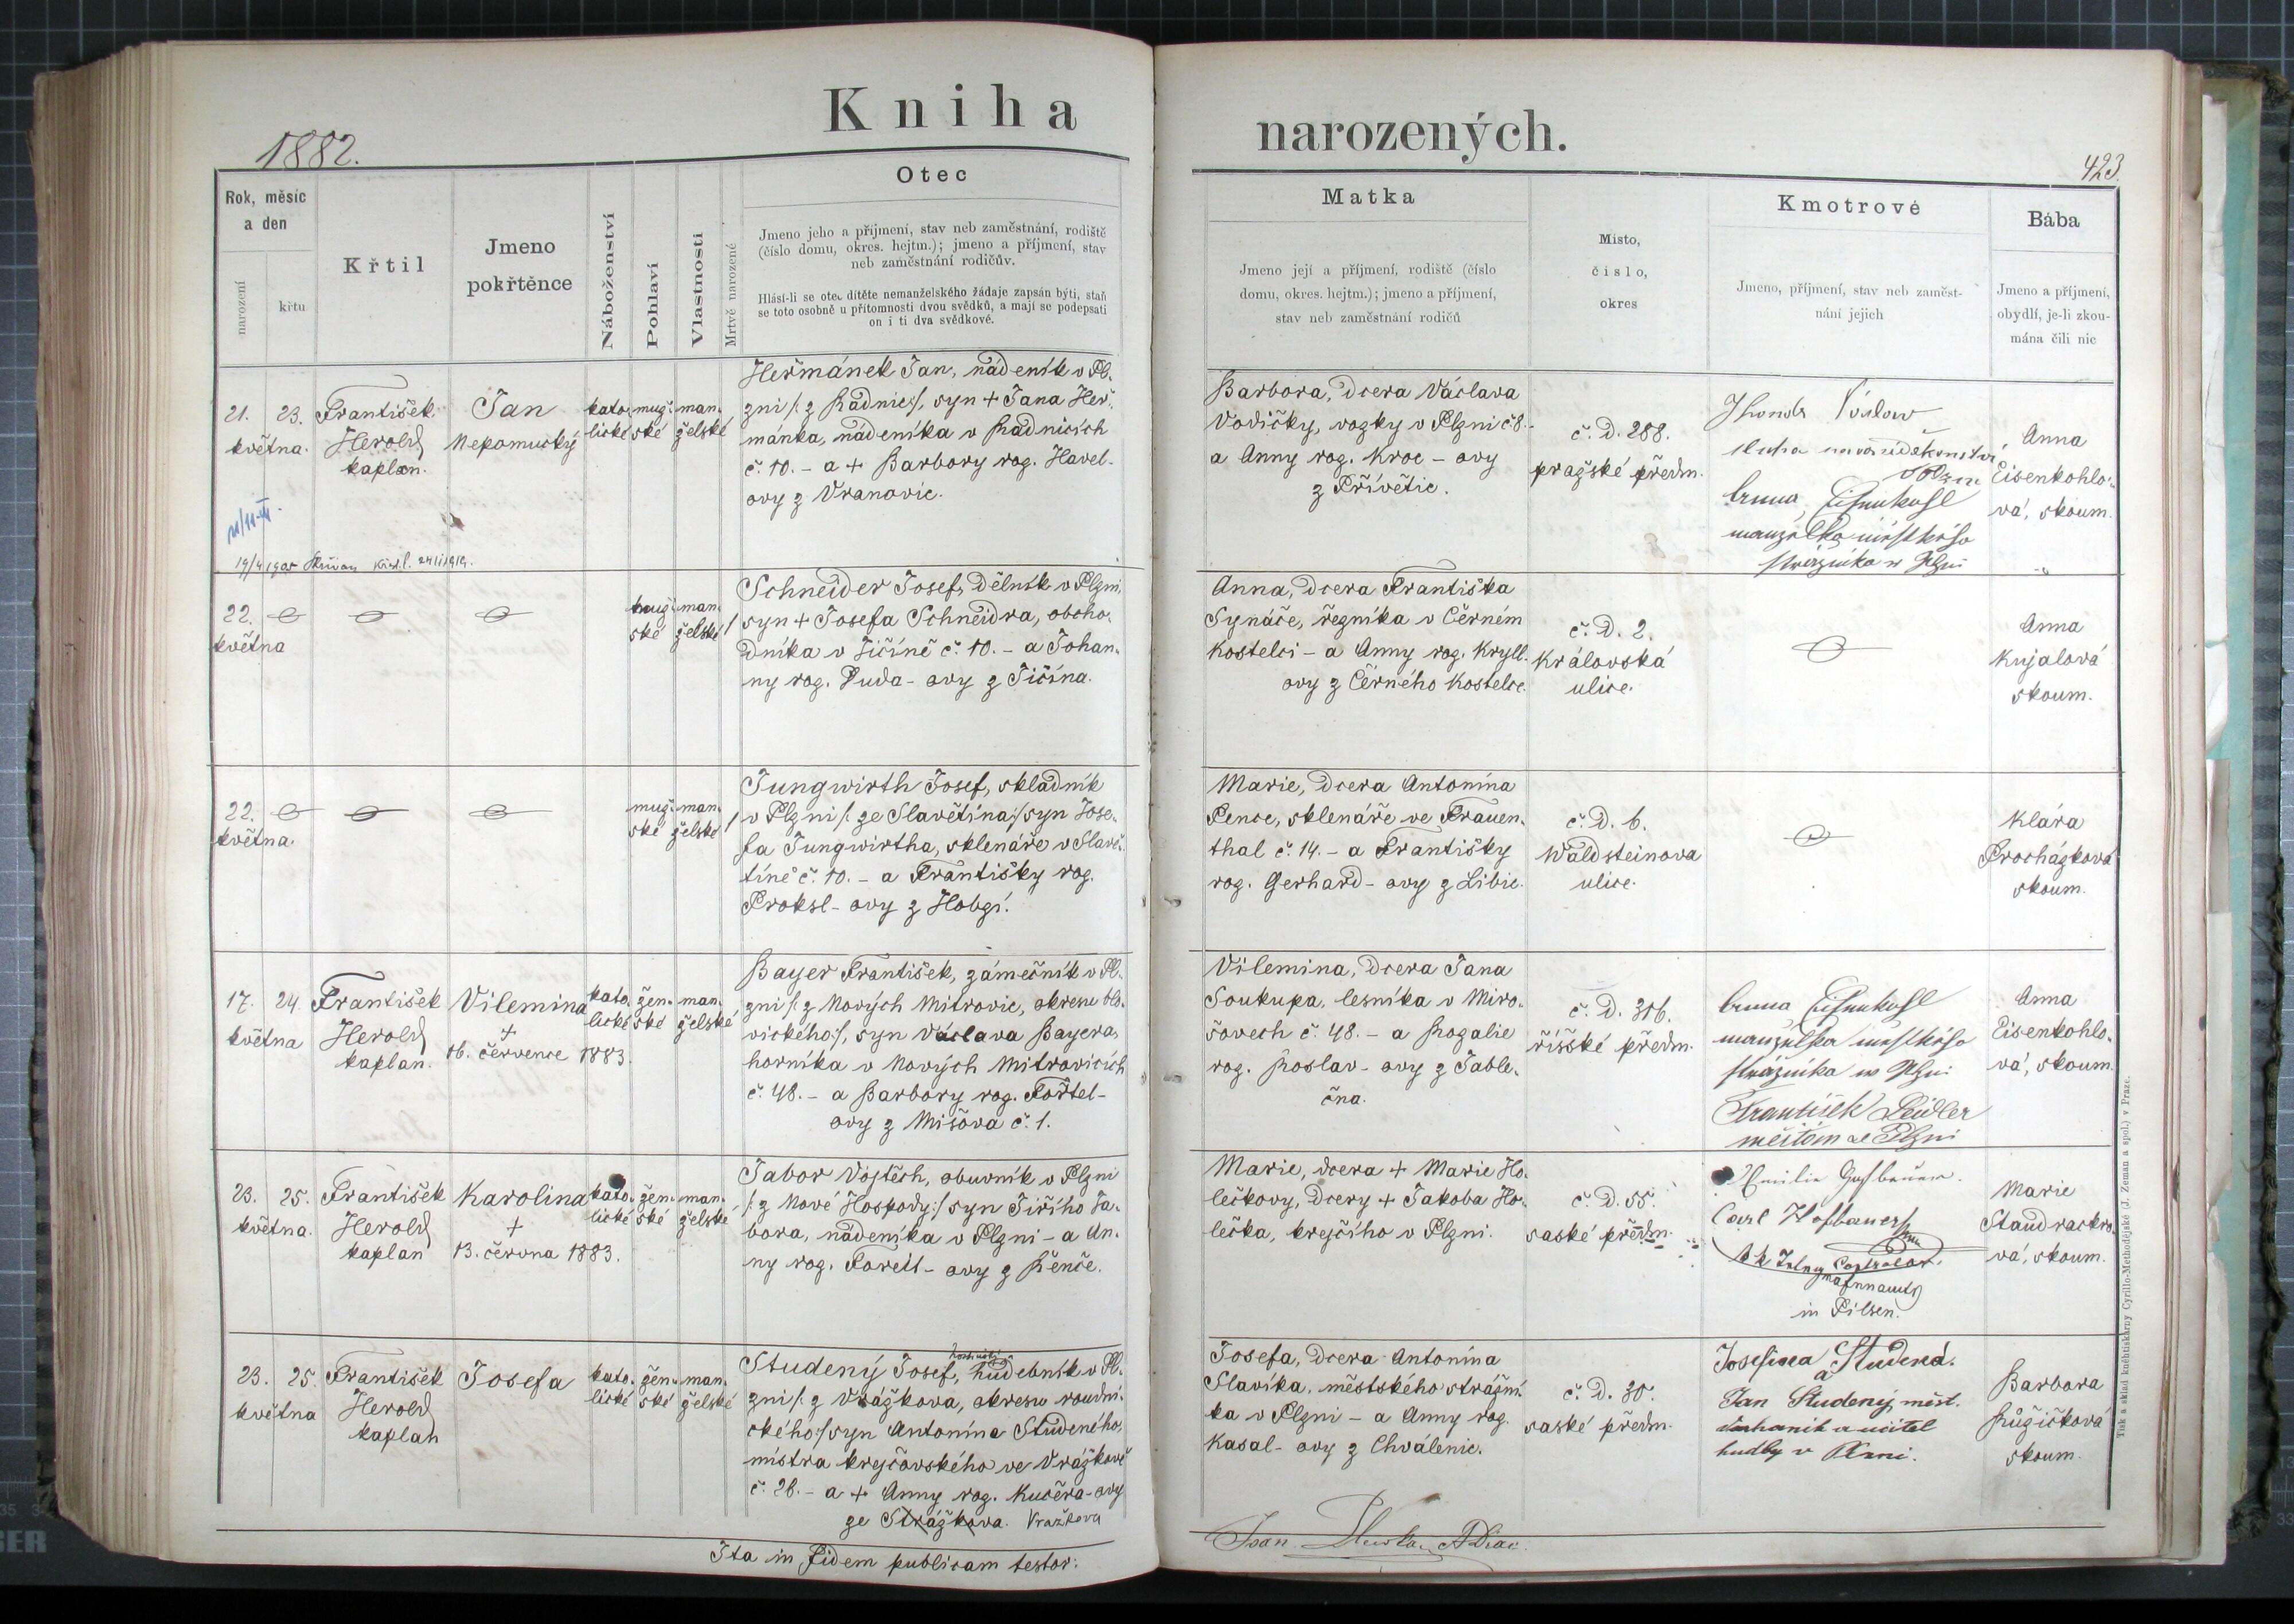 Kniha narozených.
1882.
423.
Rok, měsíc a den
narození
křtu
Křtil
Jmeno pokřtěnce
Náboženství
Pohlaví
Vlastnosti
Mrtvě narozené
Otec
Jmeno jeho a příjmení, stav neb zaměstnání, rodiště
(číslo domu, okres. hejtm.); jmeno a příjmení, stav
neb zaměstnání rodičův.
Hlásí-li se otec dítěte nemanželského žádaje zapsán býti, staň
se toto osobně u přítomnosti dvou svědků, a mají se podepsati
on i ti dva svědkové.
Matka
Jmeno její a příjmení, rodiště (číslo
domu, okres. hejtm.); jmeno a příjmení,
stav neb zaměstnání rodičů
Místo,
číslo,
okres
Kmotrové
Jmeno, příjmení, stav neb zaměst-
nání jejich
Bába
Jmeno a příjmení,
obydlí, je-li zkou-
mána čili nic
21. května.
23.
František
Herold
kaplan.
Jan
Nepomucký
kato-
lické
muž-
ské
man-
želské
Heřmánek Jan, nádeník v Pl-
zni /: z Radnic :/, syn + Jana Heř-
mánka, nádeníka v Radnicích
č. 10. - a + Barbory roz. Havel-
ovy z Vranovic.
Barbora, dcera Václava
Vodičky, vozky v Plzni č 8.-
a Anny roz. Kroc - ovy
z Přívětic.
č. D. 288.
pražské předm.
manželka městského
strážníka v Plzni
Anna
Eisenkohlo-
vá, skoum.
22.
května
muž-
ské
man-
želské
/
Schneider Josef, dělník v Plzni,
syn + Josefa Schneidra, obcho-
dníka v Jičíně č. 10. - a Johan-
ny roz. Duda - ovy z Jičína.
Anna, dcera Františka
Synáče, řezníka v Černém
Kostelci - a Anny roz. Kryll-
ovy z Černého Kostelce.
č. D. 2.
Královská
ulice.
Anna
Kujalová
skoum.
22.
května.
muž-
ské
man-
želské
/
Jungwirth Josef, skladník
v Plzni /: ze Slavětína :/ syn Jose-
fa Jungwirtha, sklenáře v Slavě-
tíně č. 10. - a Františky roz.
Proksl - ovy z Hobzí.
Marie, dcera Antonína
Pence, sklenáře ve Frauen-
thal č. 14. - a Františky
roz. Gerhard - ovy z Libic.
č. D. 6.
Waldsteinova
ulice.
Klára
Procházková
skoum.
17.
května
24.
František
Herold
kaplan.
Vilemina
+
16. července 1883.
kato-
lické
žen-
ské
man-
želské
Bayer František, zámečník v Pl-
zni /: z Nových Mitrovic, okresu blo-
vického :/, syn Václava Bayera,
horníka v Nových Mitrovicích
č. 48. - a Barbory roz. Fořtel -
ovy z Mišova č. 1.
Vilemina, dcera Jana
Soukupa, lesníka v Miro-
šovech č. 48. - a Rozalie
roz. Roslav - ovy z Jable-
čna.
č. D. 316.
říšské předm.
manželka městského
strážníka v Plzni
František Leidler
Anna
Eisenkohlo-
vá, skoum.
23.
května.
25.
František
Herold
kaplan
Karolina
+
13. června 1883.
kato-
lické
žen-
ské
man-
želské
Tabor Vojtěch, obuvník v Plzni
/: z Nové Hospody :/ syn Jiřího Ta-
bora, nádeníka v Plzni - a An-
ny roz. Foreitl - ovy z Řenče.
Marie, dcera + Marie Ho-
lečkovy, dcery + Jakoba Ho-
lečka, krejčího v Plzni.
č. D. 55.
saské předm.
Emilie Hofbauer.
Carl Hofbauer
in Pilsen.
Marie
Staudrackro-
vá, skoum.
23.
května
25.
František
Herold
kaplan
Josefa
kato-
lické
žen-
ské
man-
želské
Studený Josef, hudebník v Pl-
zni /: z Vražkova, okresu roudni-
ckého :/ syn Antonína Studeného,
mistra krejčovského ve Vražkově
č. 26. - a + Anny roz. Kučera - ovy
ze Strážkova. Vražkova
Josefa, dcera Antonína
Slavíka, městského strážní-
ka v Plzni - a Anny roz.
Kasal - ovy z Chválenic.
č. D. 30.
saské předm.
Josefina Studená.
a
Jan Studený, měst.
a učitel
hudby v Plzni.
Barbora
Růžičková
skoum.
Ita in fidem publicam testor:
Tisk a sklad knihtiskárny Cyrillo-Methodějské (J. Zeman a spol.) v Praze.